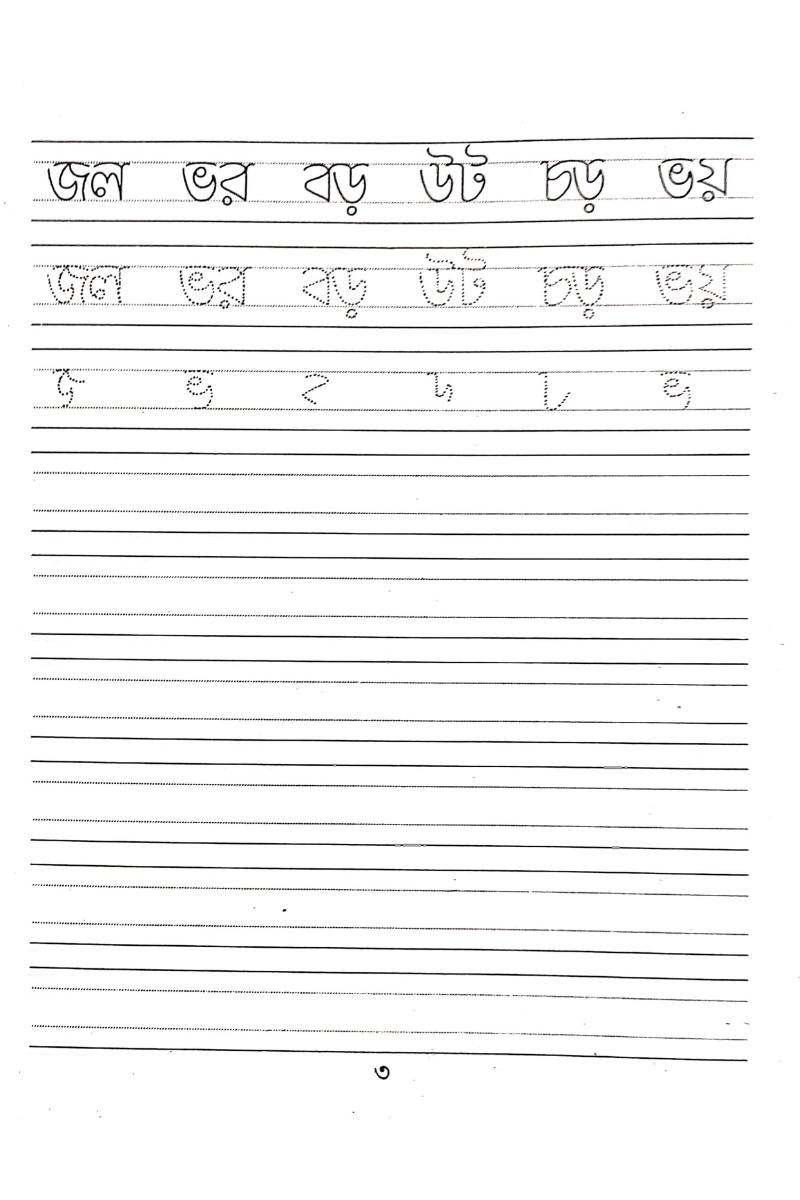 জল ভর বড় উট চড় ভয়
জল ভর বড় উট চড় ভয়
৩